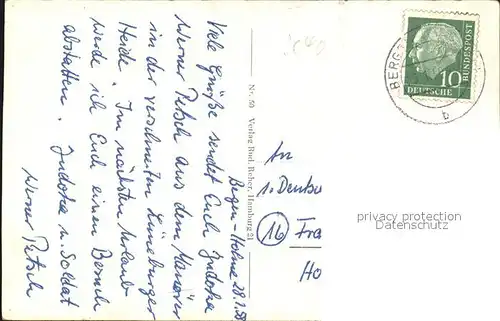 Bergen-Hohne 28.1.58.
Viele Grüße sendet Euch Judoka
Werner Petsch aus dem Manöver
in der verschneiten Lüneburger
Heide. Im nächsten Urlaub
werde ich Euch einen Besuch
abstatten. Judoka u. Soldat
Werner Petsch
Nr. 50 Verlag Rud. Reher, Hamburg 21
An
1. Deutsc
16 Fra
Ho
BERG
b
10
DEUTSCHE
BUNDESPOST
privacy protection
Datenschutz